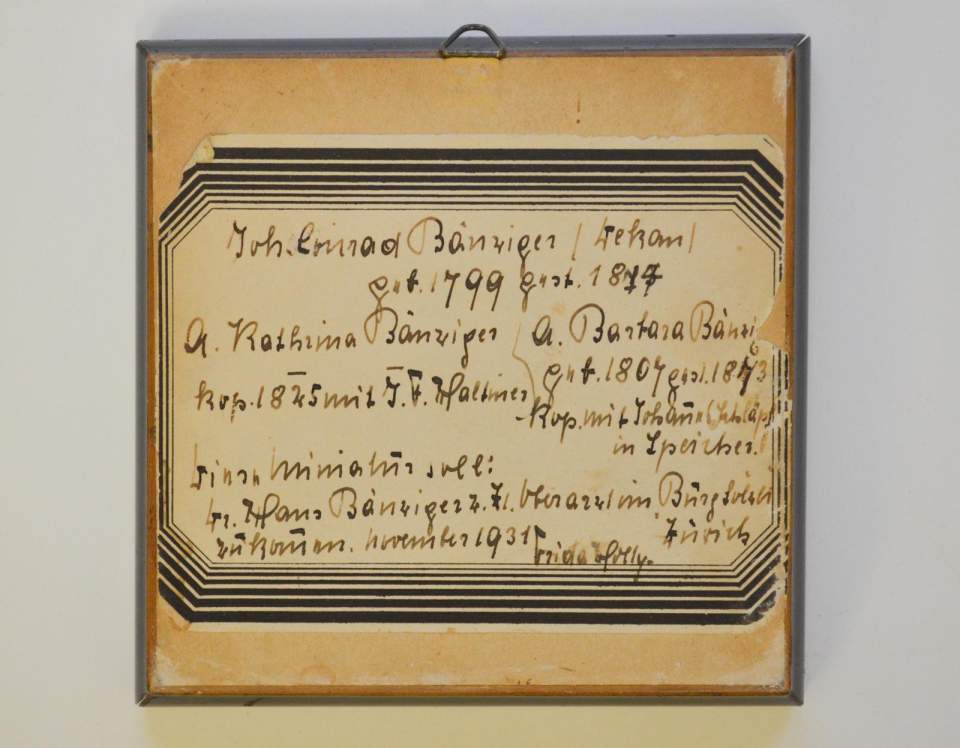 Joh. Conrad Bänziger / Dekan /
geb. 1799 gest. 18
A. Kathrina Bänziger
kop. 1825 mit J. F. Haltiner
A. Barbara Bänzi
geb. 1807 gest. 1873
kop. mit Johann Schläpf
in Speicher.
Diese Miniatur soll:
Dr. Hans Bänziger z. Zt. Oberarzt im Burghölzli
zukommen. November 1931 Zürich
Frida Holly.